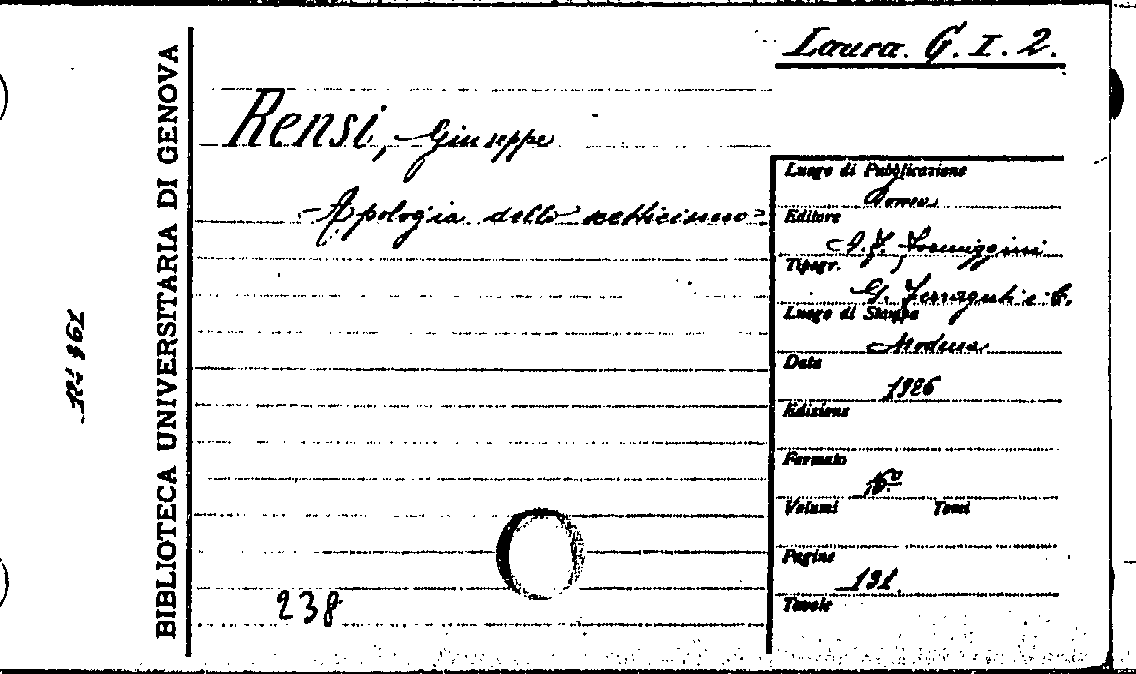 Laura. G. I. 2.
BIBLIOTECA UNIVERSITARIA DI GENOVA
Rensi, Giuseppe
Apologia dello scetticismo
Luogo di Pubblicazione
Roma
Editore
A. F. Formiggini
Tipogr.
G. Ferraguti e C.
Luogo di Stampa
Modena
Data
1926
Edizione
Formato
16º
Volumi Tomi
Pagine
131
Tavole
238